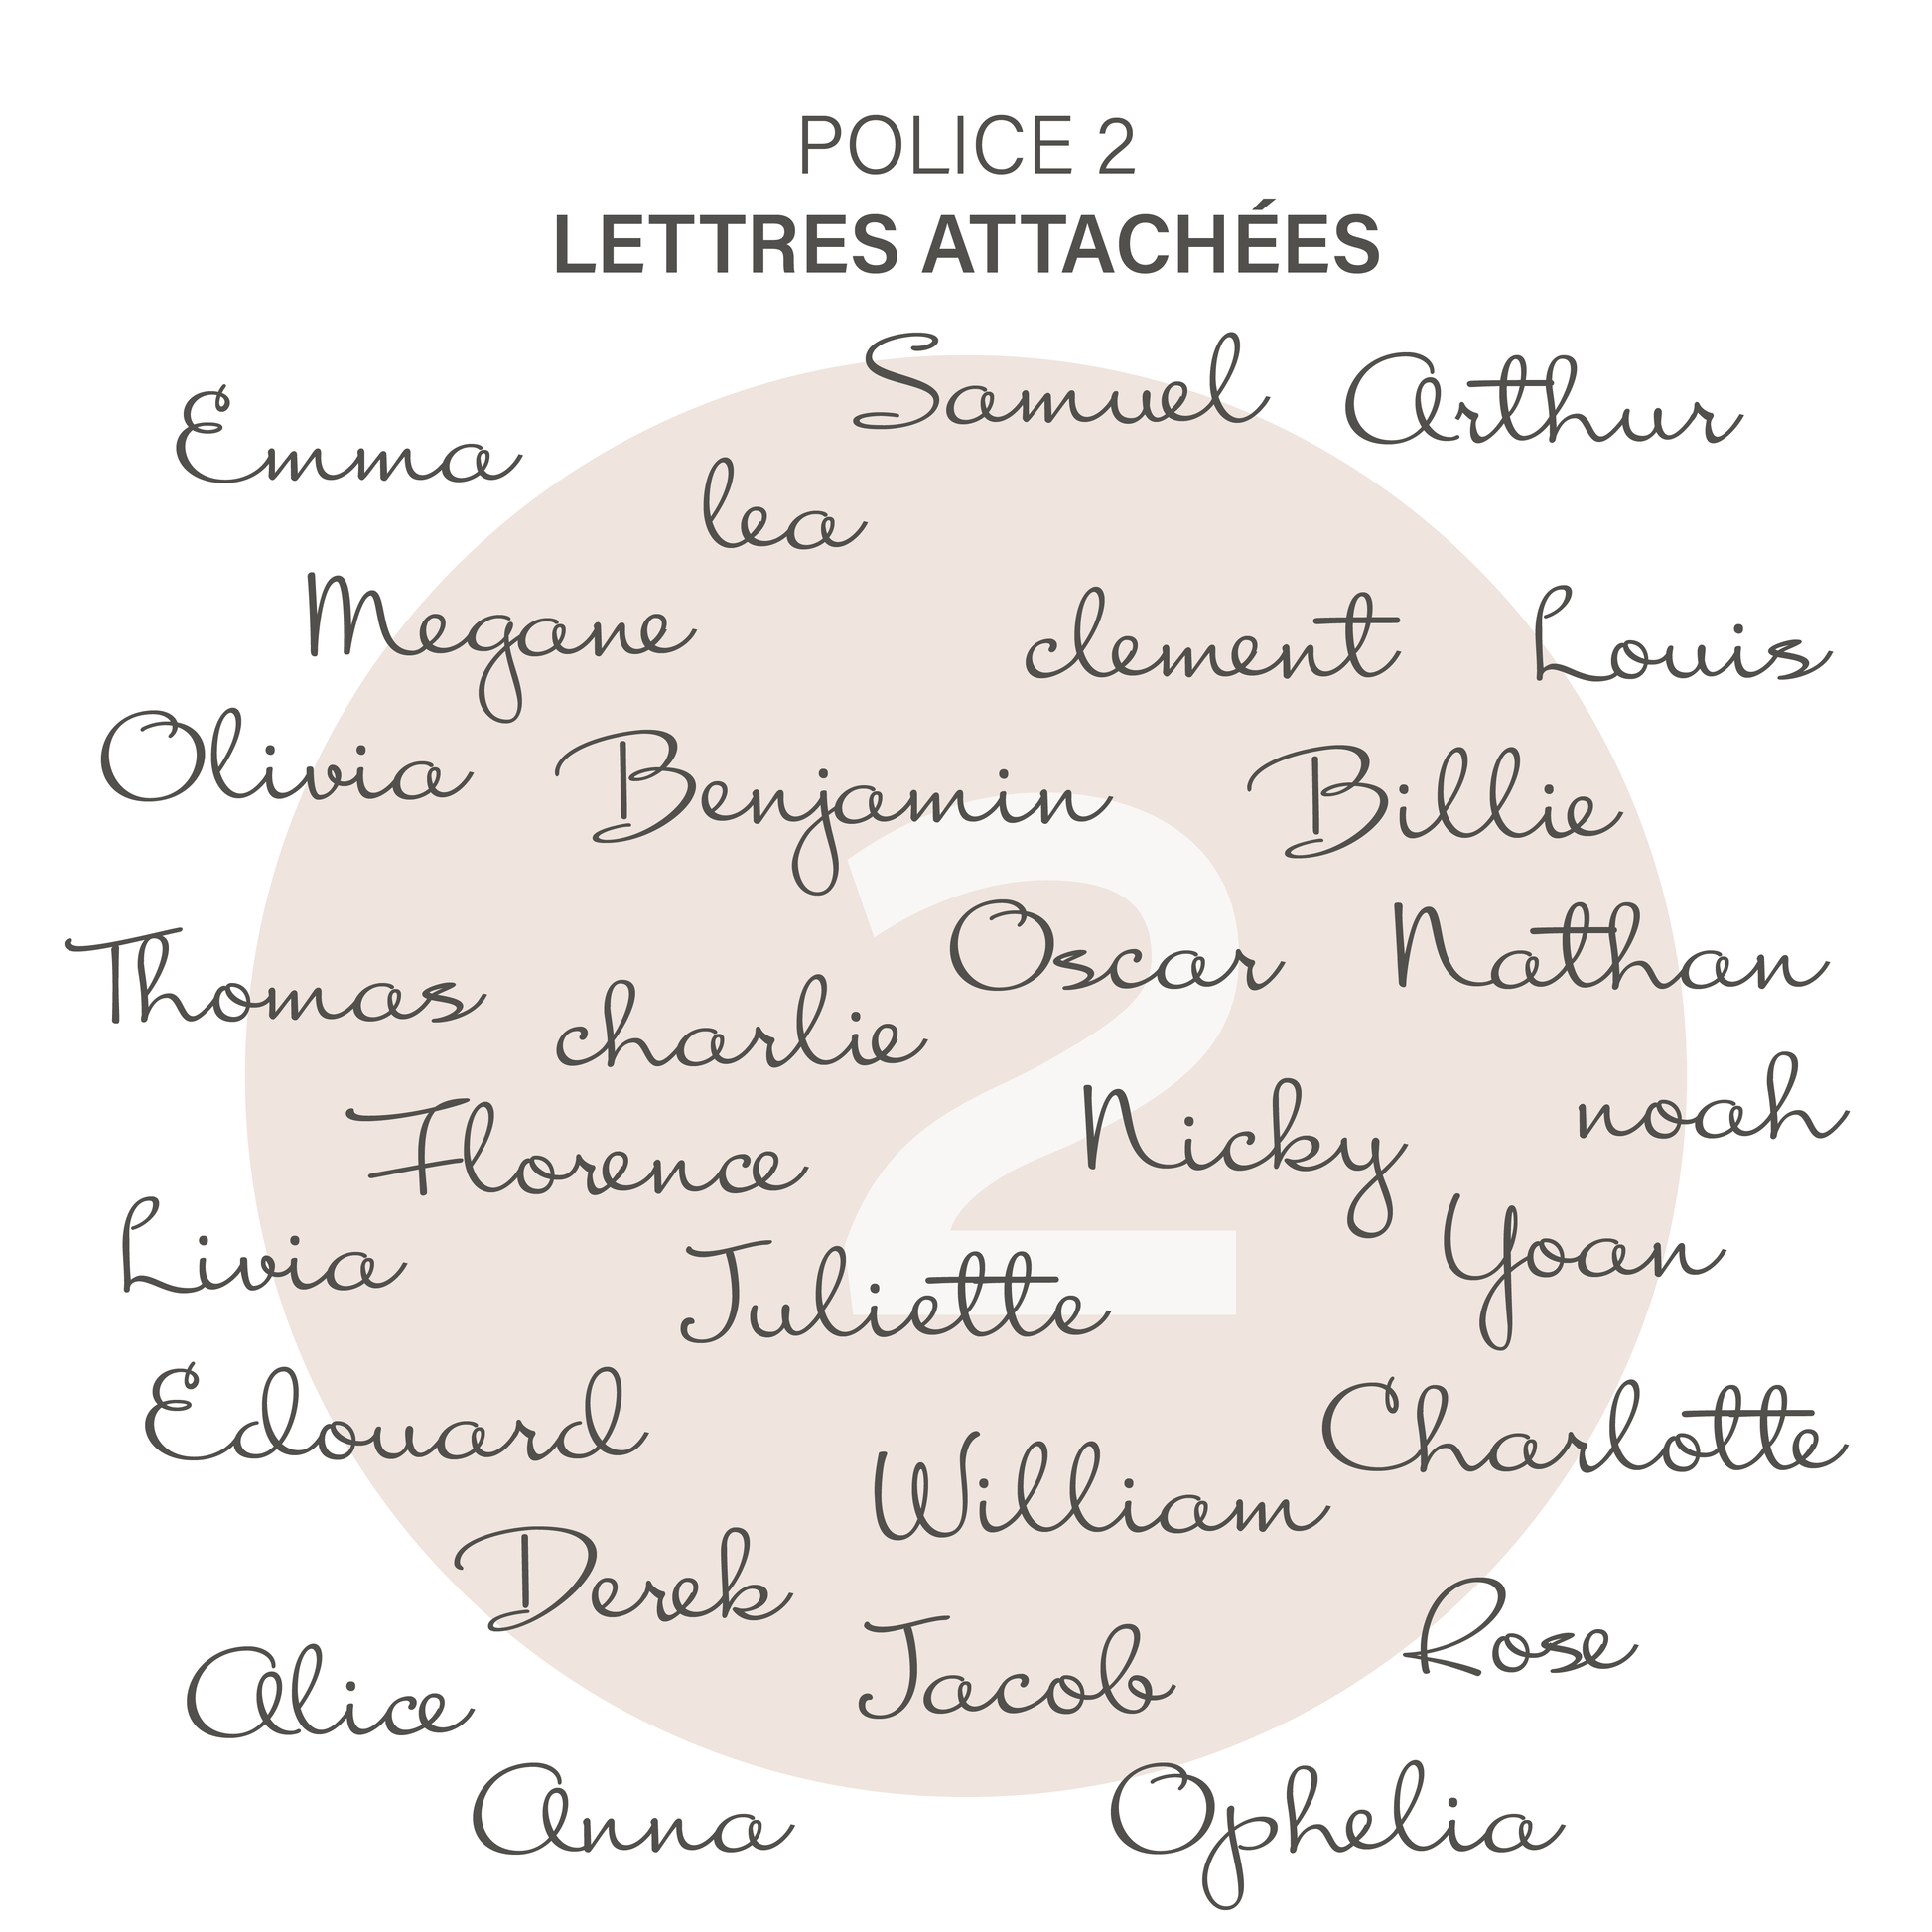 POLICE 2
LETTRES ATTACHÉES
Samuel
Arthur
Emma
lea
Megane
clement
Louis
Olivia
Benjamin
Billie
Oscar
Nathan
Thomas
charlie
Florence
Nicky
noah
Livia
Juliette
Yoan
Edouard
Charlotte
William
Derek
Jacob
Rose
Alice
Anna
Ophelia
2